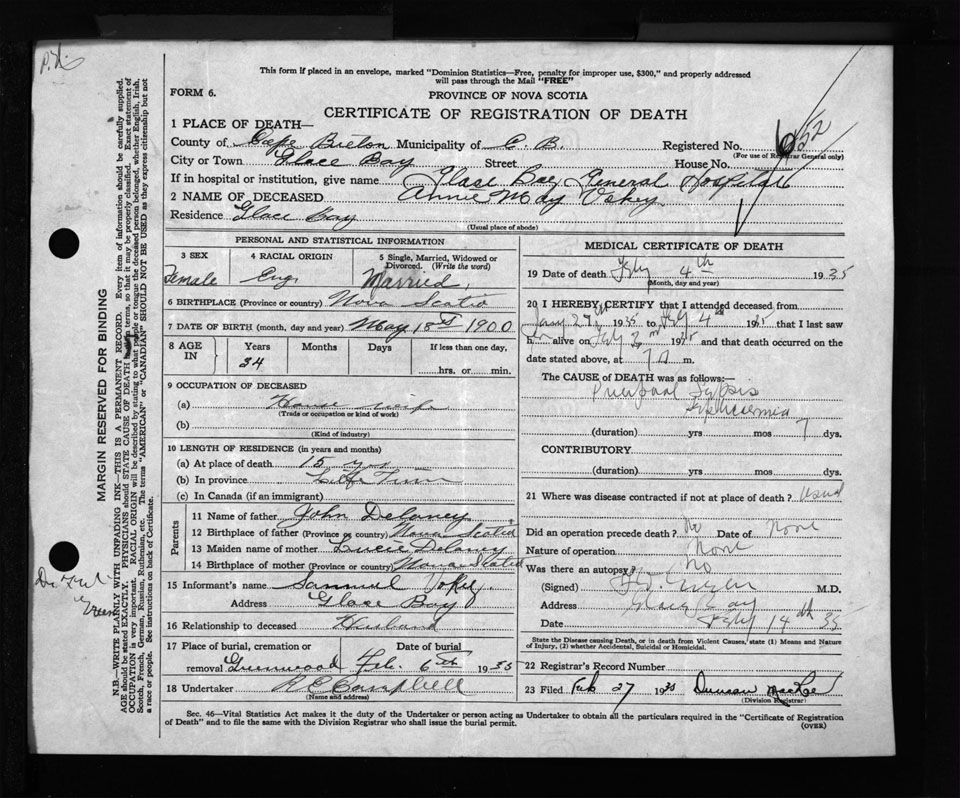 This form if placed in an envelope, marked "Dominion Statistics—Free, penalty for improper use, $300," and properly addressed
will pass through the Mail "FREE"
FORM 6.
PROVINCE OF NOVA SCOTIA
CERTIFICATE OF REGISTRATION OF DEATH
1 PLACE OF DEATH—
County of Cape Breton Municipality of C. B. Registered No.
(For use of Registrar General only)
City or Town Glace Bay Street House No.
If in hospital or institution, give name Glase Bay General Hospital
2 NAME OF DECEASED Annie May Vokey
Residence Glace Bay
(Usual place of abode)
PERSONAL AND STATISTICAL INFORMATION
3 SEX 4 RACIAL ORIGIN 5 Single, Married, Widowed or Divorced. (Write the word)
Female Eng. Married
6 BIRTHPLACE (Province or country) Nova Scotia
7 DATE OF BIRTH (month, day and year) May 18th 1900
8 AGE IN Years Months Days If less than one day,
34 hrs. or min.
9 OCCUPATION OF DECEASED
(a) House wife
(Trade or occupation or kind of work)
(b)
(Kind of industry)
10 LENGTH OF RESIDENCE (in years and months)
(a) At place of death 15 yrs
(b) In province Life Time
(c) In Canada (if an immigrant)
Parents
11 Name of father John Delaney
12 Birthplace of father (Province or country) Nova Scotia
13 Maiden name of mother Delaney
14 Birthplace of mother (Province or country) Nova Scotia
15 Informant's name Samuel Vokey
Address Glace Bay
16 Relationship to deceased Husband
17 Place of burial, cremation or Date of burial
removal Greenwood Feb. 6th 1935
18 Undertaker R C Campbell
(Name and address)
MEDICAL CERTIFICATE OF DEATH
19 Date of death Feby 4th 1935
(Month, day and year)
20 I HEREBY CERTIFY that I attended deceased from
Jany 1935 to Feby 4th 1935 that I last saw
h alive on Feby 3rd 1935 and that death occurred on the
date stated above, at 7 a m.
The CAUSE OF DEATH was as follows:
Puerperal Sepsis
Septicaemia
(duration) yrs mos 7 dys.
CONTRIBUTORY
(duration) yrs mos dys.
21 Where was disease contracted if not at place of death?
Did an operation precede death? No Date of None
Nature of operation None
Was there an autopsy? No
(Signed) M.D.
Address Glace Bay
Date Feby 14th 35
State the Disease causing Death, or in death from Violent Causes, state (1) Means and Nature
of Injury, (2) whether Accidental, Suicidal or Homicidal.
22 Registrar's Record Number
23 Filed Feb 27 1935 Duncan MacRae
(Division Registrar)
Sec. 46—Vital Statistics Act makes it the duty of the Undertaker or person acting as Undertaker to obtain all the particulars required in the "Certificate of Registration
of Death" and to file the same with the Division Registrar who shall issue the burial permit.
(OVER)
MARGIN RESERVED FOR BINDING
N.B.—WRITE PLAINLY WITH UNFADING INK—THIS IS A PERMANENT RECORD. Every item of information should be carefully supplied.
AGE should be stated EXACTLY. PHYSICIANS should STATE CAUSE OF DEATH in terms, so that it may be properly classified. Exact statement of
OCCUPATION is very important. RACIAL ORIGIN will be described by stating to what people or tongue the deceased person belonged, whether English, Irish,
Scotch, French, German, Russian, Ruthenian, etc. The terms "AMERICAN" or "CANADIAN" SHOULD NOT BE USED as they express citizenship but not
a race or people. See instructions on back of Certificate.